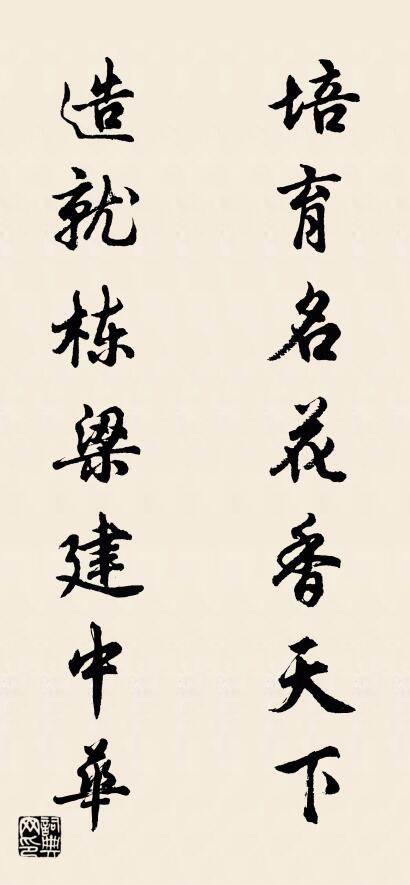 培育名花香天下
造就栋梁建中華
詞典网印